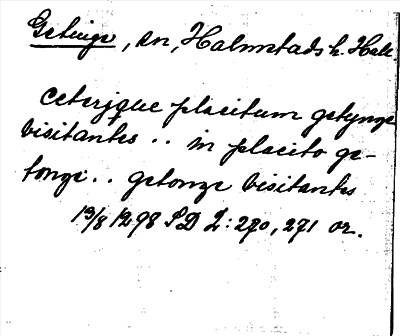 Getinge, sn, Halmstads h. Hall.
Ceterique placitum getynge
visitantes .. in placito ge-
tonge .. getonge visitantes
13/8 1298 SD 2: 270, 271 or.